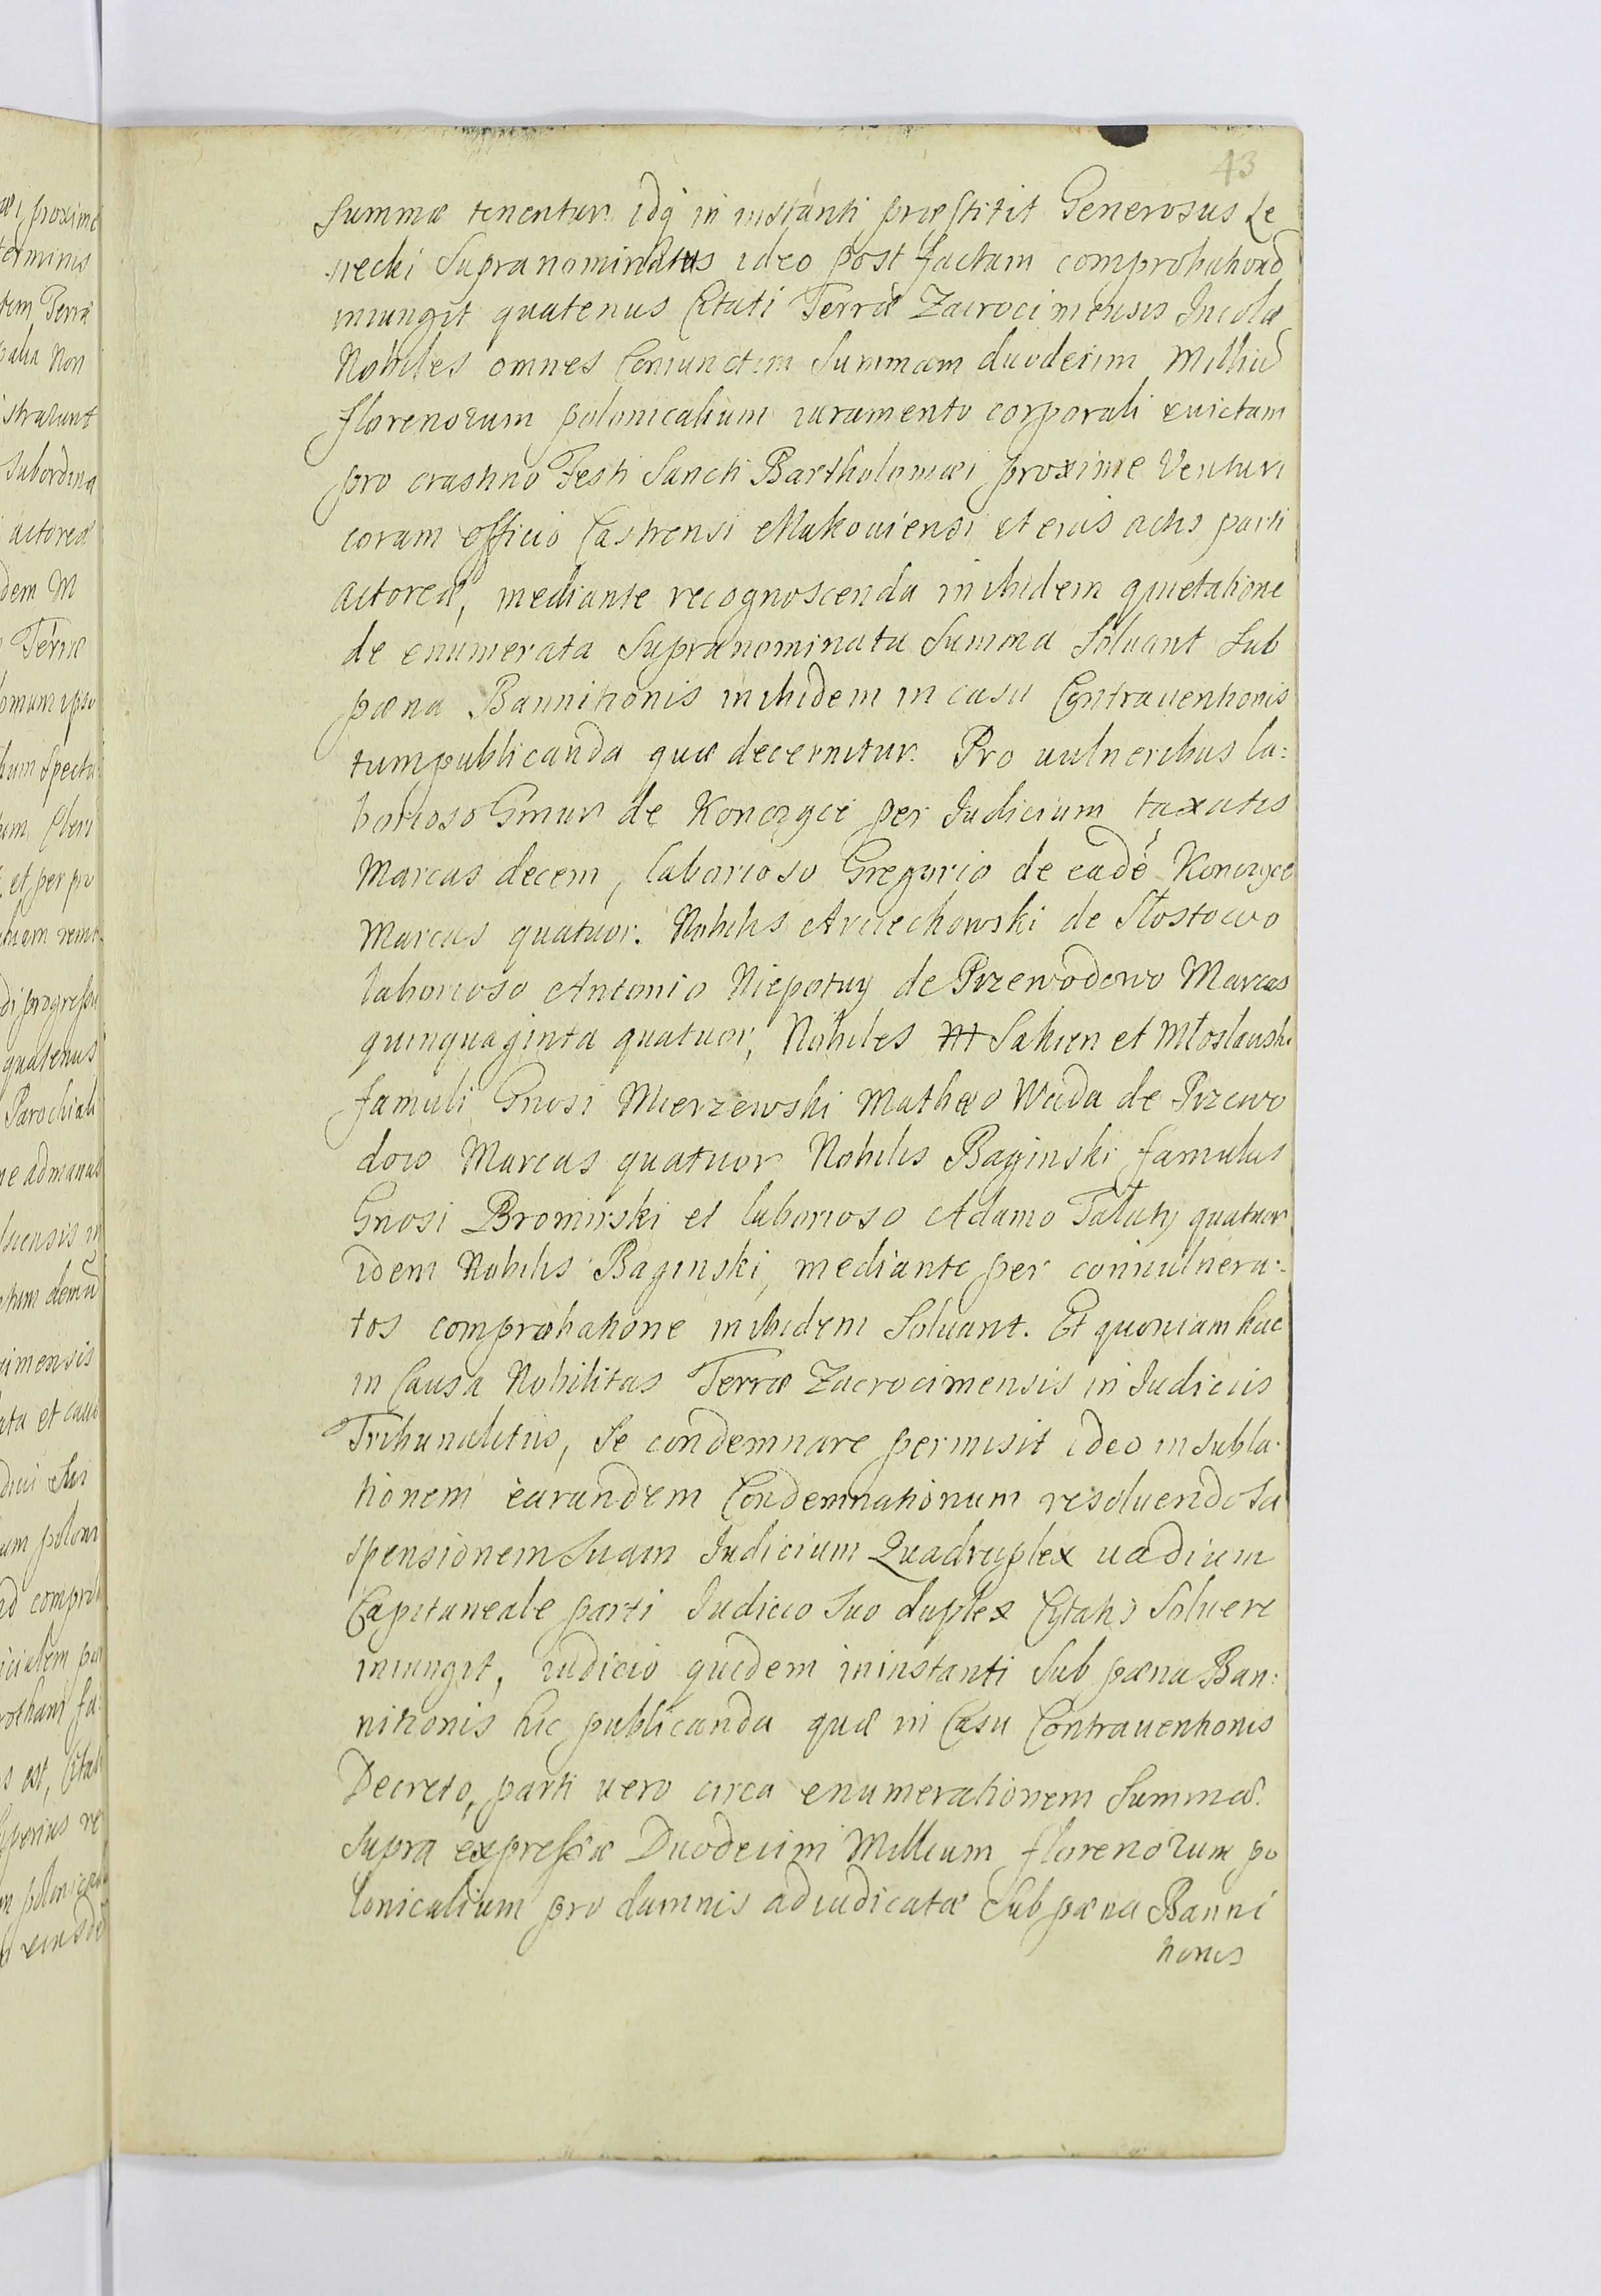 43
Summæ tenentur idq in instánti præstitit Generosus Le
siecki Supranominatus ideo post factam comprobationẽ
iniungit quatenus Citati Terræ Zacrocimensis Incolæ
Nobiles omnes Coniunctim Summam duodecim Milliũ
florenorum polonicalium iuramento corporali euictam
pro crastino Festi Sancti Bartholomæi proxime Venturi
coram officio Castrensi Makouiensi et eius actis parti
actoreæ, mediante recognoscenda inibidem quietatione
de enumerata Supranominata Summa Soluant Sub
pæna Bannitionis inibidem in casu Contrauentionis
tum publicanda quæ decernitur. Pro vulneribus la:
borioso Gmur de Konczyce per Iudicium taxatis
Marcas decem, laborioso Gregorio de eadẽ Konczyce
Marcas quatuor. Nobilis Arciechowski de Slostowo
laborioso Antonio Niepotuy de Przewodowo Marcas
quinquaginta quatuor, Nobiles Sakien et Młosławski
famuli Gnosi Mierzewski Mathæo Wuda de Przewo
dowo Marcas quatuor Nobilis Baginski famulus
Gnosi Bromirski et laborioso Adamo Tałuty quatuor
idem Nobilis Baginski, mediante per conuulnera:
tos comprobatione inibidem Soluant. Et quoniam hac
in Causa Nobilitas Terræ Zacrocimensis in Iudiciis
Tribunalitiis, Se condemnare permisit ideo in subla:
tionem earundem Condemnationum resoluendo Su
spensionem Suam Iudicium Quadruplex uadium
Capitaneale parti Iudicio Suo duplex Citatis Soluere
iniungit, iudicio quidem in instanti Sub pæna Ban:
nitionis hic publicanda quæ in Casu Contrauentionis
Decreto, parti uero circa enumerationem Summæ
Supra expressæ Duodecim Millium florenorum po
lonicalium pro damnis adiudicatæ Sub pæna Banni
tionis